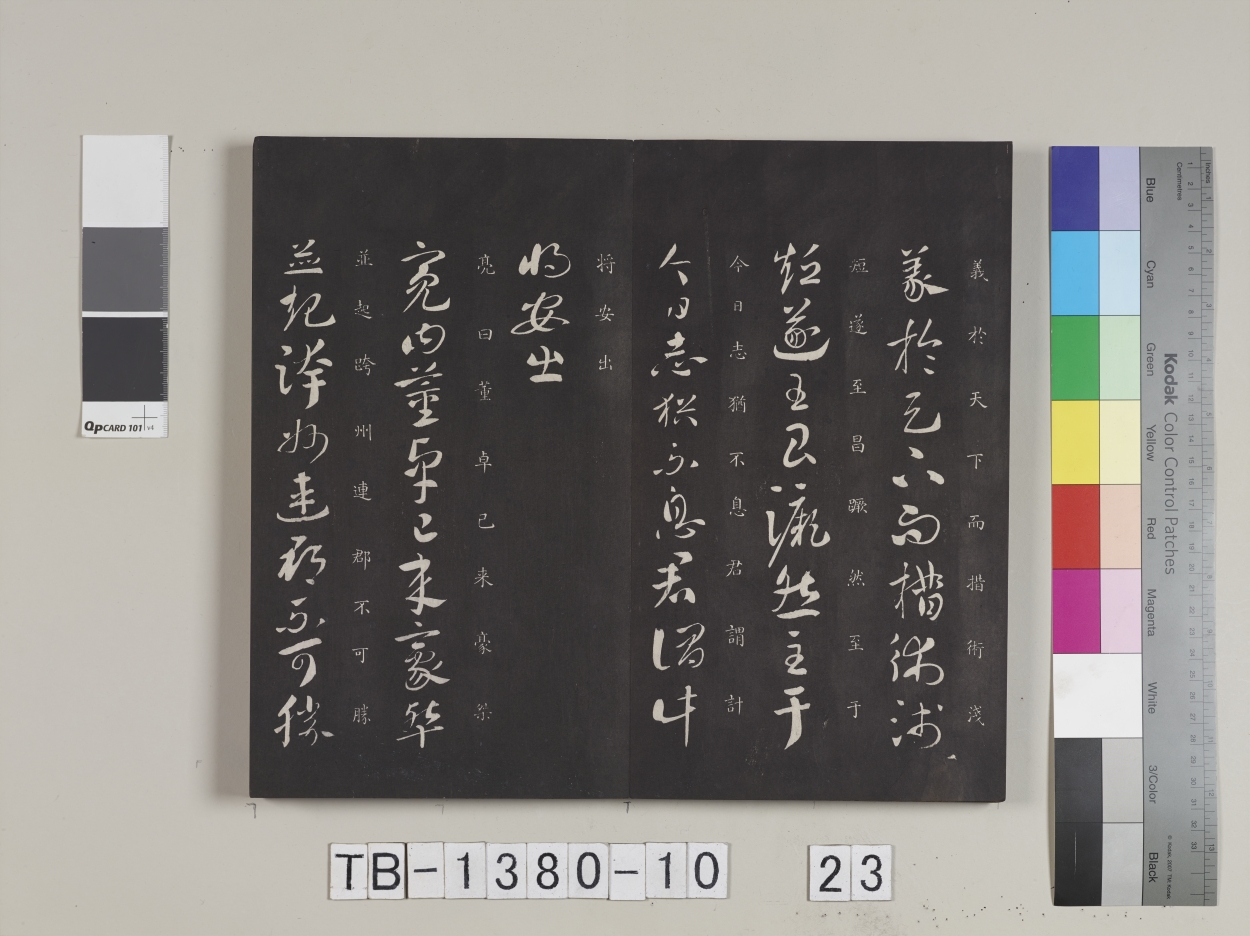 義於天下而措術淺
義於天下而措術淺
短遂至昌蹶然至于
短遂至昌蹶然至于
今日志猶不息君謂計
今日志猶不息君謂計
将安出
将安出
亮曰董卓已来豪桀
亮曰董卓已来豪桀
並起跨州連郡不可勝
並起跨州連郡不可勝
QPCARD 101 v4
TB-1380-10
23
Kodak Color Control Patches
Blue
Cyan
Green
Yellow
Red
Magenta
White
3/Color
Black
Inches
Centimetres